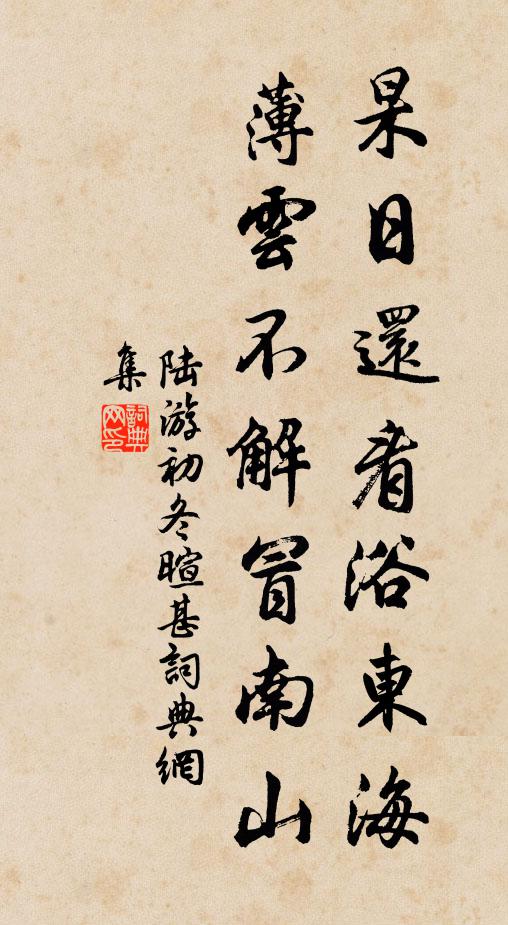 杲日還看浴東海
薄雲不解冒南山
陸游初冬暄甚詞典網
集
詞典
网印